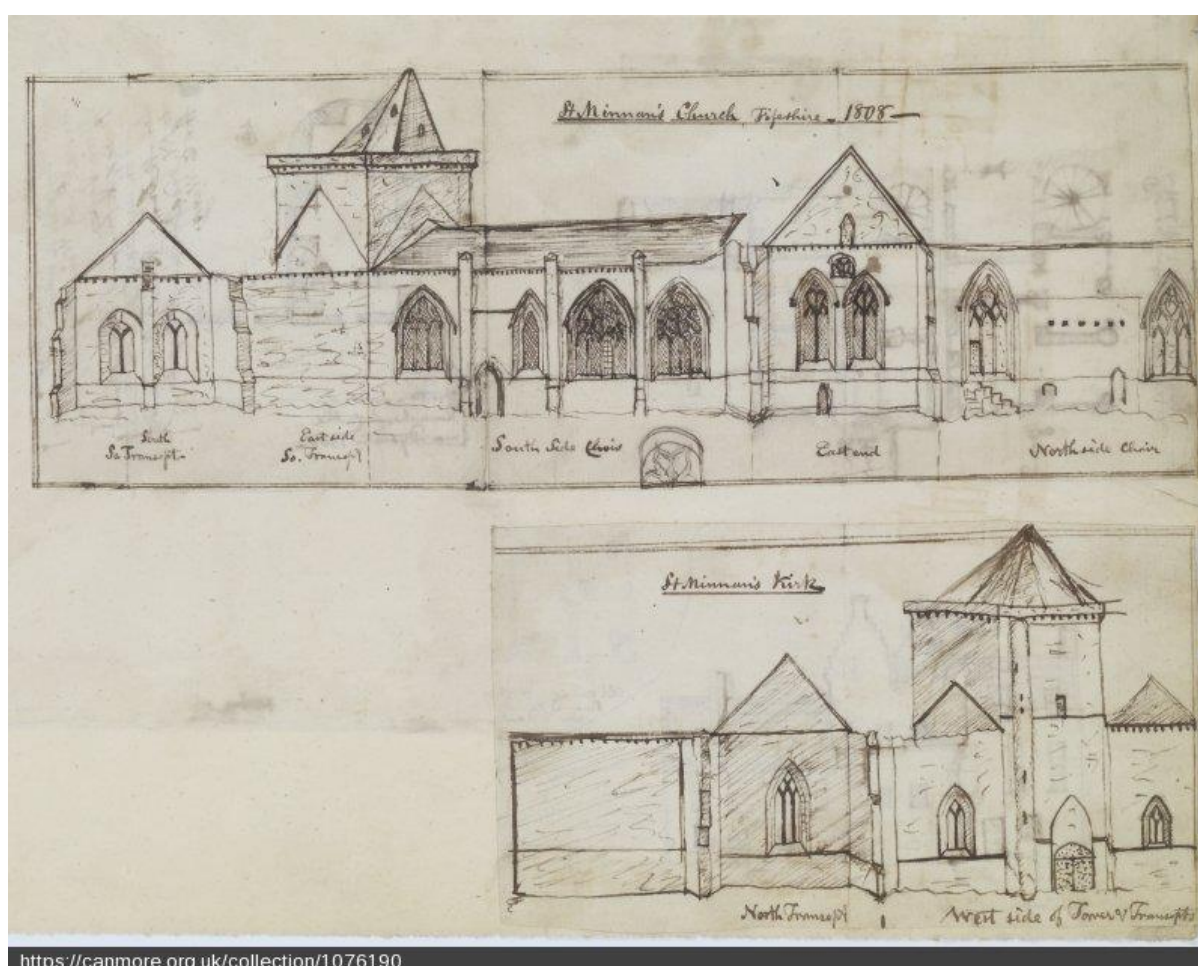 St Minnan's Church, Fifeshire - 1808 -
South
So. Transept.
East side
So. Transept
South Side Choir
East end
North side Choir
St Minnan's Kirk
North Transept
West side of Tower & Transepts
https://canmore.org.uk/collection/1076190